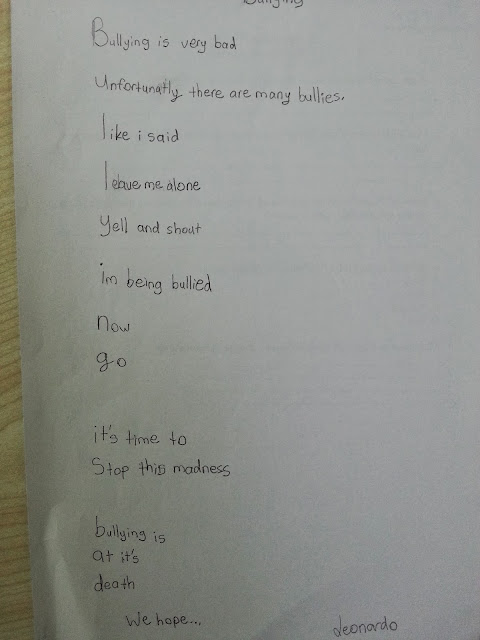 Bullying
Bullying is very bad
Unfortunatly there are many bullies.
like i said
leave me alone
Yell and shout
im being bullied
now
go
it's time to
Stop this madness
bullying is
at it's
death
We hope...
deonardo